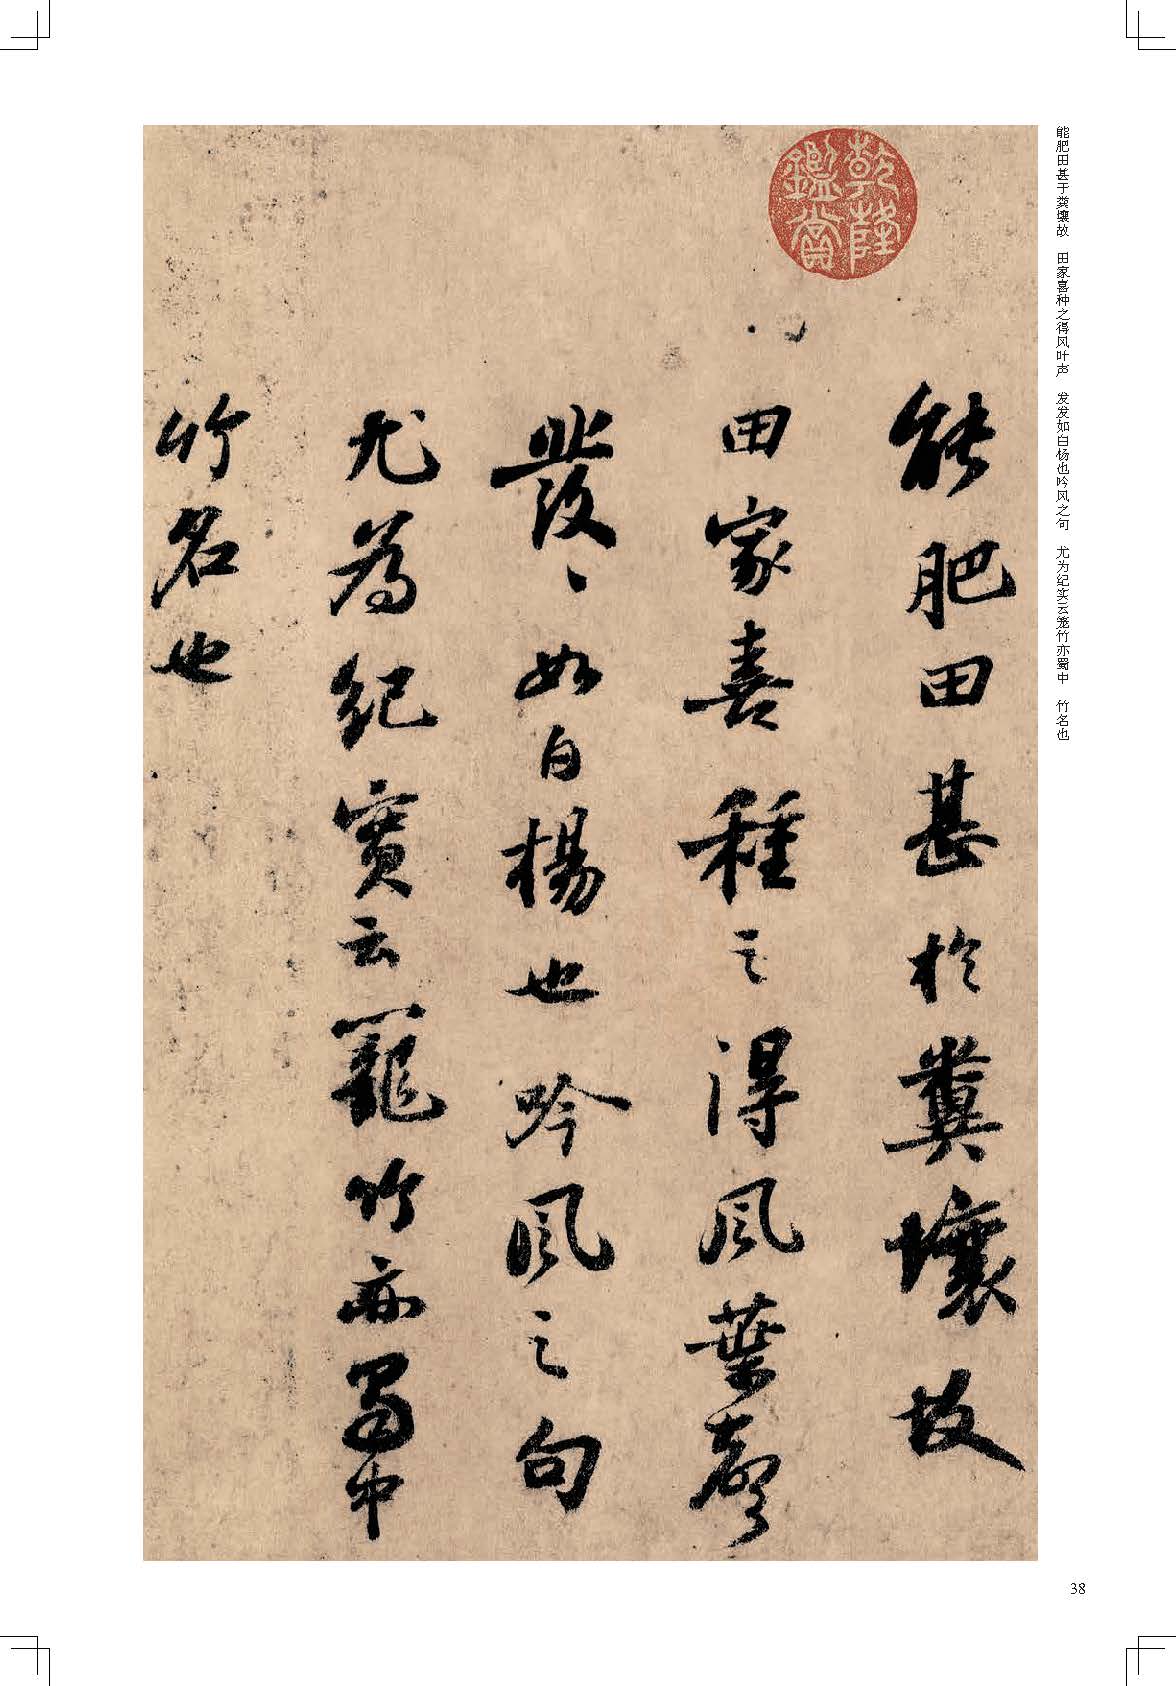 能肥田甚于粪壤故　田家喜种之得风叶声　发发如白杨也吟风之句　尤为纪实云笼竹亦蜀中　竹名也
乾隆
鑑賞
能肥田甚於糞壤故
田家喜種之得風葉聲
發〻如白楊也吟風之句
尤為紀實云籠竹亦蜀中
竹名也
38